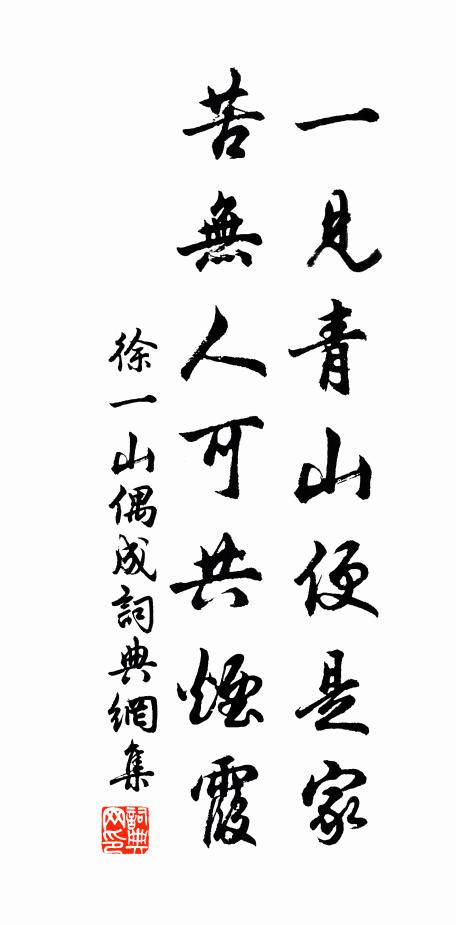 一見青山便是家
苦無人可共煙霞
徐一山偶成詞典網集
詞典网印